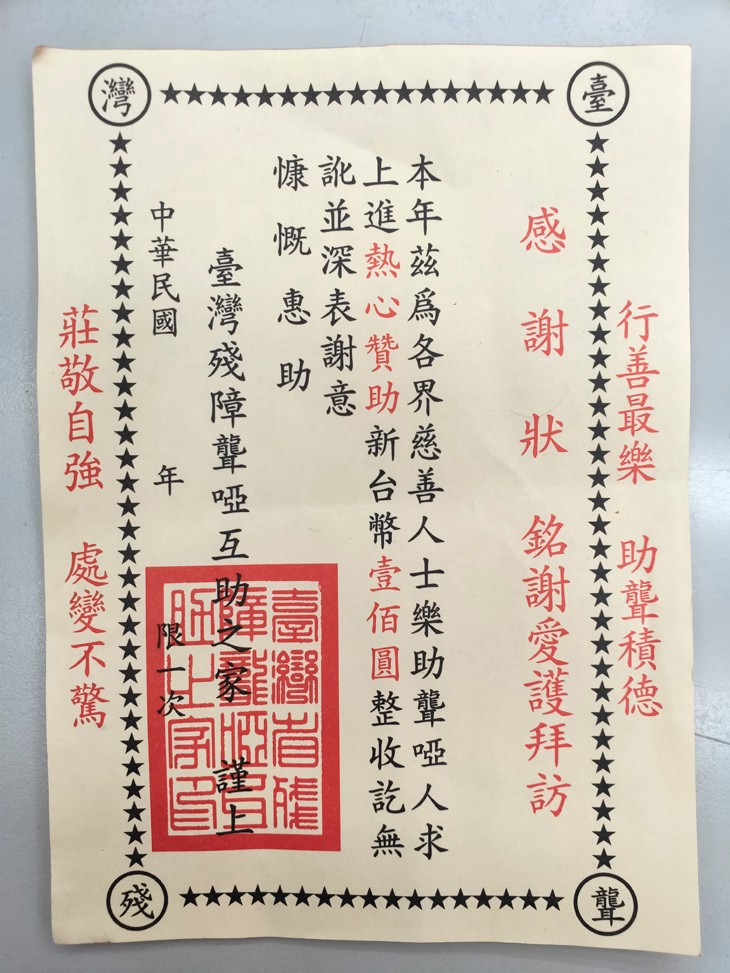 臺
灣
行善最樂 助聾積德
感謝狀 銘謝愛護拜訪
本年茲爲各界慈善人士樂助聾啞人求
上進熱心贊助新台幣壹佰圓整收訖無
訛並深表謝意
慷慨惠助
臺灣殘障聾啞互助之家 謹上
臺灣省殘
障聾啞互
助之家印
中華民國 年 限一次
莊敬自強 處變不驚
聾
殘